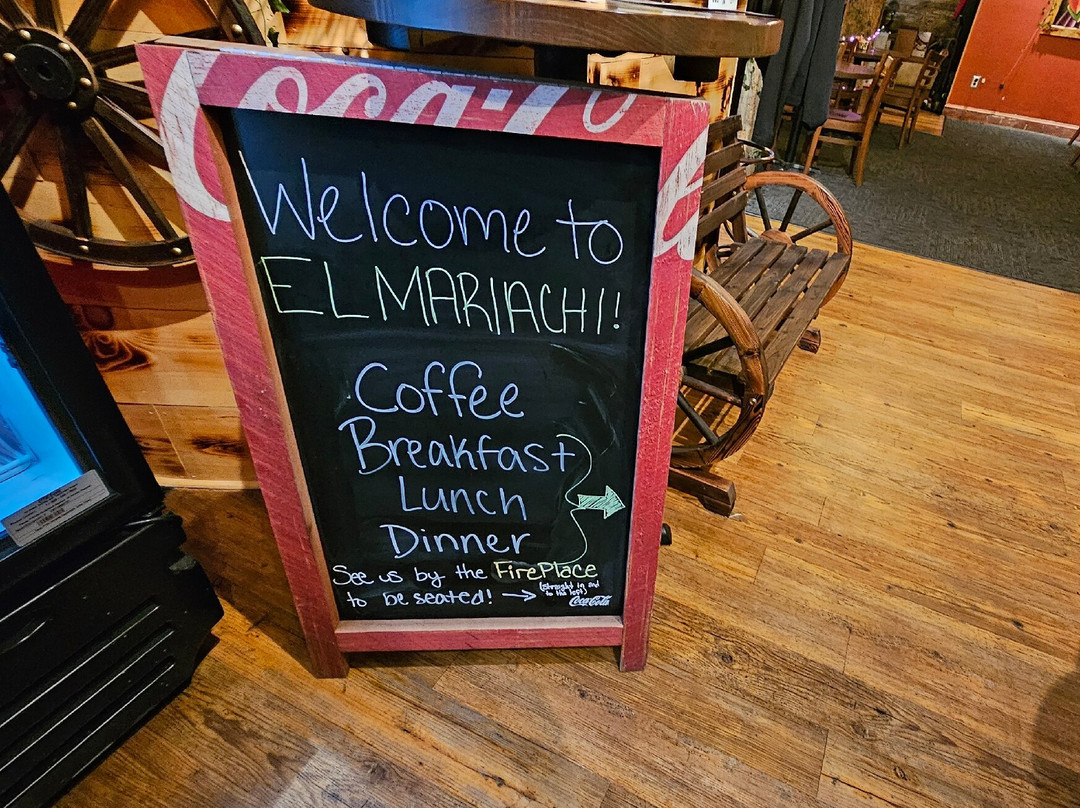 Coca-Co
Welcome to
EL MARIACHI!
Coffee
Breakfast
Lunch
Dinner
See us by the FirePlace
(straight in and
to the left)
to be seated! →
Coca-Cola